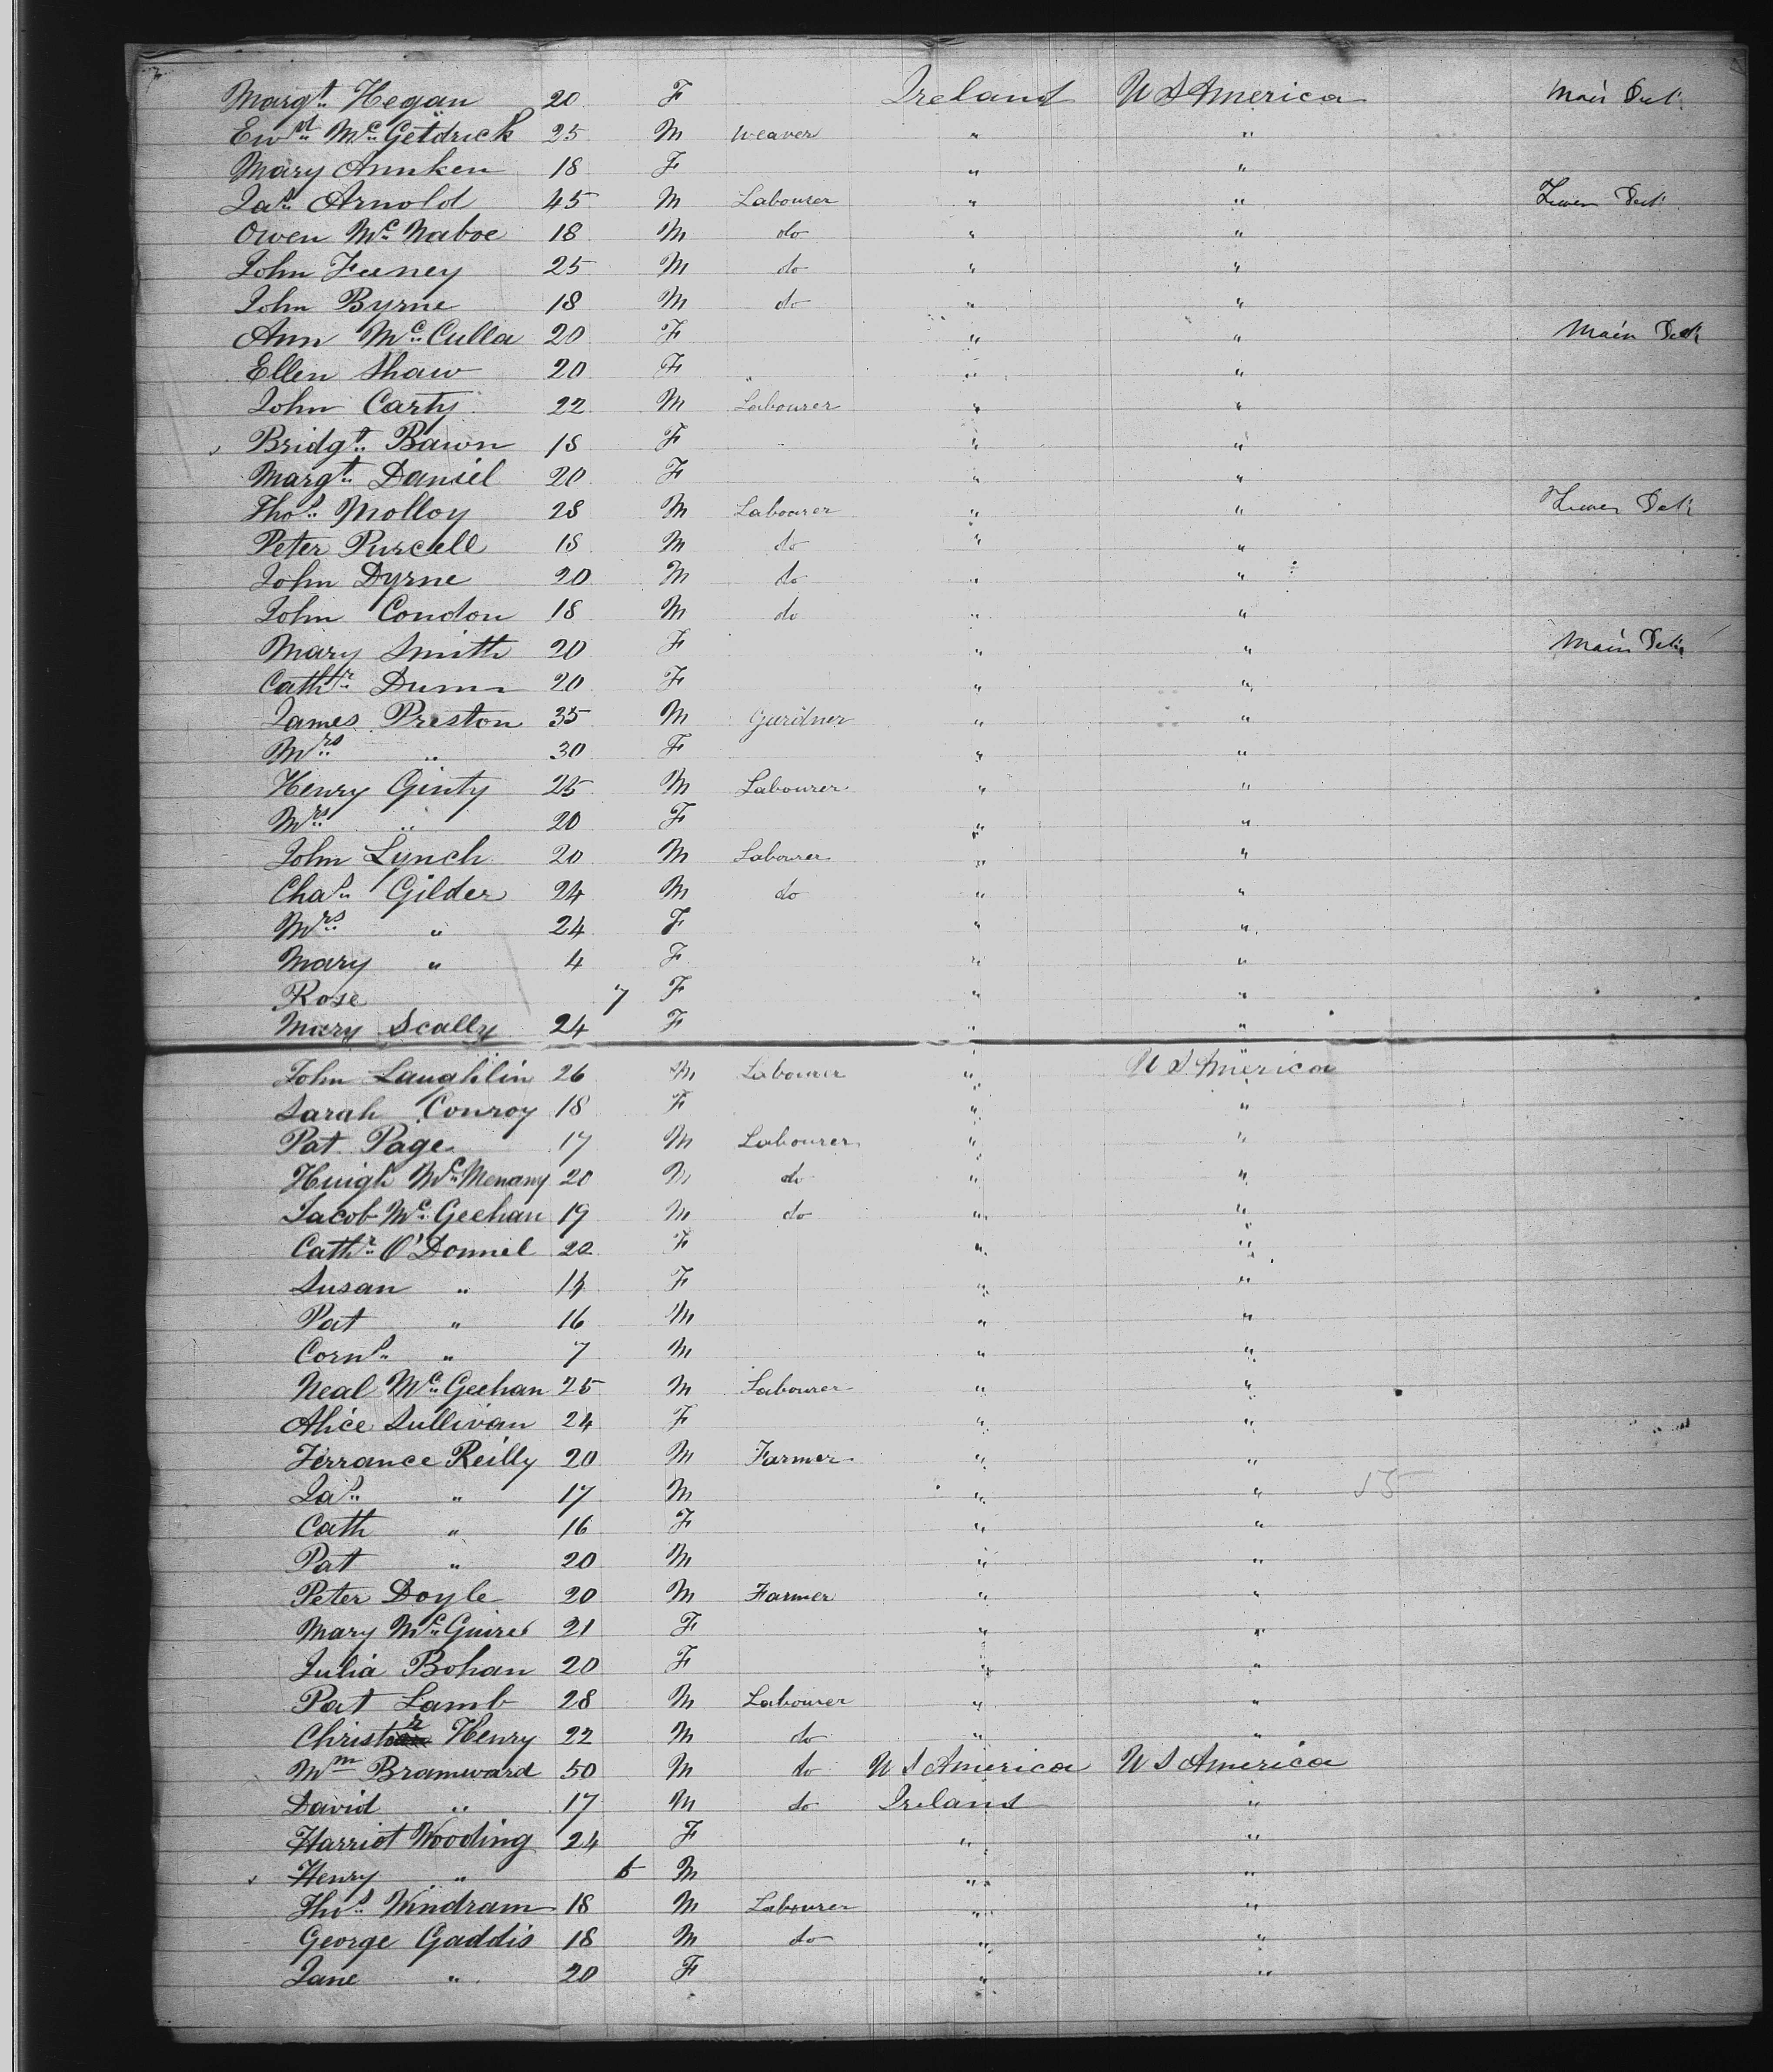 Margt. Hegan 20 F Ireland U S America Main Deck
Ewd. Mc. Getdrick 25 M Weaver " "
Mary Annken 18 F " "
Jas. Arnold 45 M Labourer " " Lower Deck
Owen Mc. Naboe 18 M do " "
John Feeney 25 M do " "
John Byrne 18 M do " "
Ann Mc. Culla 20 F " " Main Deck
Ellen Shaw 20 F " "
John Carty 22 M Labourer " "
Bridgt. Bawn 18 F " "
Margt. Daniel 20 F " "
Thos. Molloy 28 M Labourer " " Lower Deck
Peter Purcell 18 M do " "
John Dyrne 20 M do " "
John Condon 18 M do " "
Mary Smith 20 F " " Main Deck
Cathr. Dunn 20 F " "
James Preston 35 M Guridner " "
Mrs. " 30 F " "
Henry Ginty 25 M Labourer " "
Mrs. " 20 F " "
John Lynch 20 M Labourer " "
Chas. Gilder 24 M do " "
Mrs. " 24 F " "
Mary " 4 F " "
Rose 7 F " "
Mary Scally 24 F " "
John Laughlin 26 M Labourer " U S America
Sarah Conroy 18 F " "
Pat Page 17 M Labourer " "
Huigh Mc. Menamy 20 M do " "
Jacob Mc. Geehan 19 M do " "
Cathr. O'Donnel 22 F " "
Susan " 14 F " "
Pat " 16 M " "
Corns. " 7 M " "
Neal Mc. Geehan 25 M Labourer " "
Alice Sullivan 24 F " "
Terrance Reilly 20 M Farmer " "
Jas. " 17 M " "
Cath " 16 F " "
Pat " 20 M " "
Peter Doyle 20 M Farmer " "
Mary Mc. Guire 21 F " "
Julia Bohan 20 F " "
Pat Lamb 28 M Labourer " "
Christr Henry 22 M do " "
Wm Bramward 50 M do U S America U S America
David " 17 M do Ireland "
Harriot Wooding 24 F " "
Henry " 6 M " "
Thos. Windram 18 M Labourer " "
George Gaddis 18 M do " "
Jane " 20 F " "